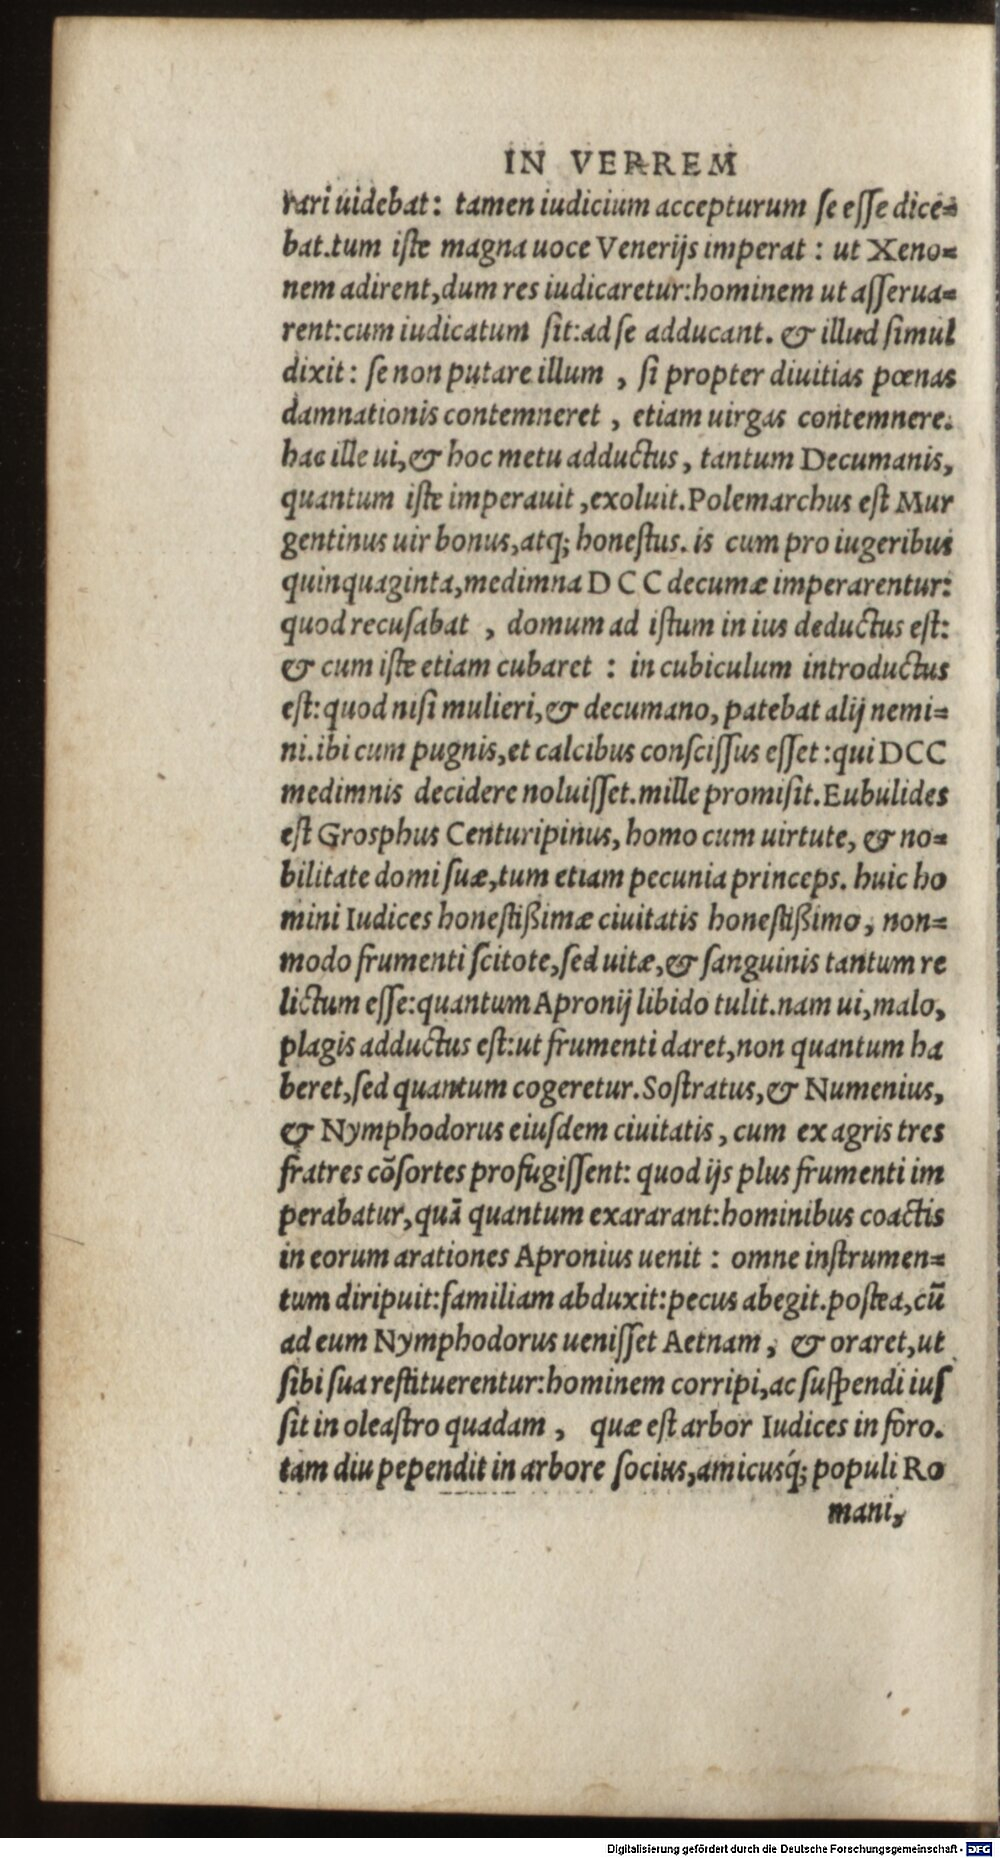 IN VERREM
rari uidebat: tamen iudicium accepturum ſe eſſe dice=
bat.tum iſte magna uoce Venerijs imperat : ut Xeno=
nem adirent,dum res iudicaretur:hominem ut aſſerua=
rent:cum iudicatum ſit:ad ſe adducant. & illud ſimul
dixit: ſe non putare illum , ſi propter diuitias pœnas
damnationis contemneret , etiam uirgas contemnere.
hac ille ui,& hoc metu adductus, tantum Decumanis,
quantum iſte imperauit ,exoluit.Polemarchus eſt Mur
gentinus uir bonus,atq; honeſtus. is cum pro iugeribus
quinquaginta,medimna D C C decumæ imperarentur:
quod recuſabat , domum ad iſtum in ius deductus eſt:
& cum iſte etiam cubaret : in cubiculum introductus
eſt: quod niſi mulieri,& decumano, patebat alij nemi=
ni.ibi cum pugnis,et calcibus conſciſſus eſſet :qui DCC
medimnis decidere noluiſſet.mille promiſit.Eubulides
eſt Groſphus Centuripinus, homo cum uirtute, & no=
bilitate domi ſuæ,tum etiam pecunia princeps. huic ho
mini Iudices honeſtißimæ ciuitatis honeſtißimo, non=
modo frumenti ſcitote,ſed uitæ,& ſanguinis tantum re
lictum eſſe:quantum Apronij libido tulit.nam ui,malo,
plagis adductus eſt:ut frumenti daret,non quantum ha
beret,ſed quantum cogeretur.Soſtratus,& Numenius,
& Nymphodorus eiuſdem ciuitatis, cum ex agris tres
fratres cõſortes profugiſſent: quod ijs plus frumenti im
perabatur,quã quantum exararant:hominibus coactis
in eorum arationes Apronius uenit : omne inſtrumen=
tum diripuit:familiam abduxit:pecus abegit.poſtea,cũ
ad eum Nymphodorus ueniſſet Aetnam, & oraret,ut
ſibi ſua reſtituerentur:hominem corripi,ac ſuſpendi iuſ
ſit in oleaſtro quadam , quæ eſt arbor Iudices in foro.
tam diu pependit in arbore ſocius,amicusq́; populi Ro
mani,
Digitalisierung gefördert durch die Deutsche Forschungsgemeinschaft - DFG